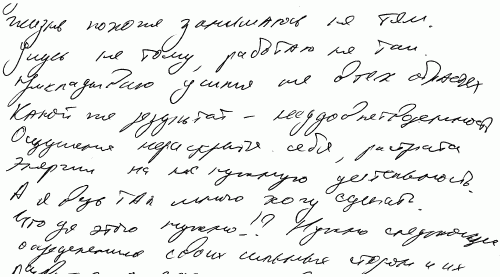 жизнь похоже занимаюсь не тем.
Учусь не тому, работаю не там.
Прикладываю усилия не в тех областях
Какой же результат – неудовлетворенность
Ощущение нераскрытия себя, растрата
энергии на не нужную деятельность.
А я ведь так много хочу сделать.
Что для этого нужно!? Нужно следующее
определение своих сильных сторон и их